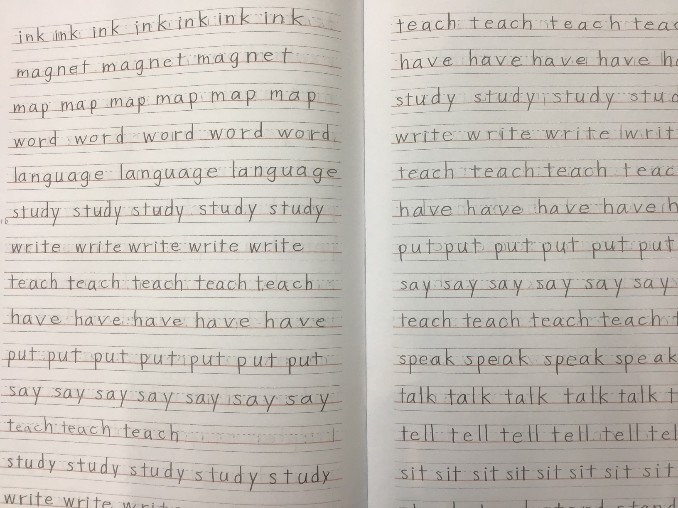 ink ink ink ink ink ink ink
magnet magnet magnet
map map map map map map
word word word word word
language language language
study study study study study
write write write write write
teach teach teach teach teach
have have have have have
put put put put put put put
say say say say say say say
teach teach teach
study study study study study
write write
teach teach teach teac
have have have have h
study study study stud
write write write writ
teach teach teach teac
have have have have h
put put put put put put
say say say say say say
teach teach teach teach t
speak speak speak speak
talk talk talk talk talk t
tell tell tell tell tell tel
sit sit sit sit sit sit sit sit